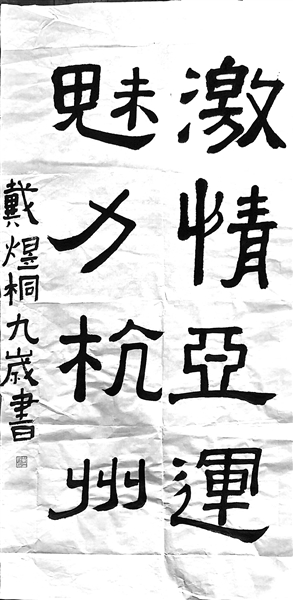 激情亞運
魅力杭州
戴煜桐九歲書